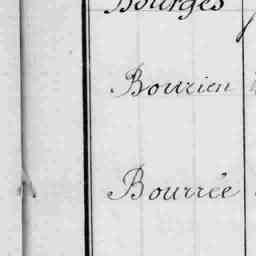 Bourges
Bourien
Bourrée